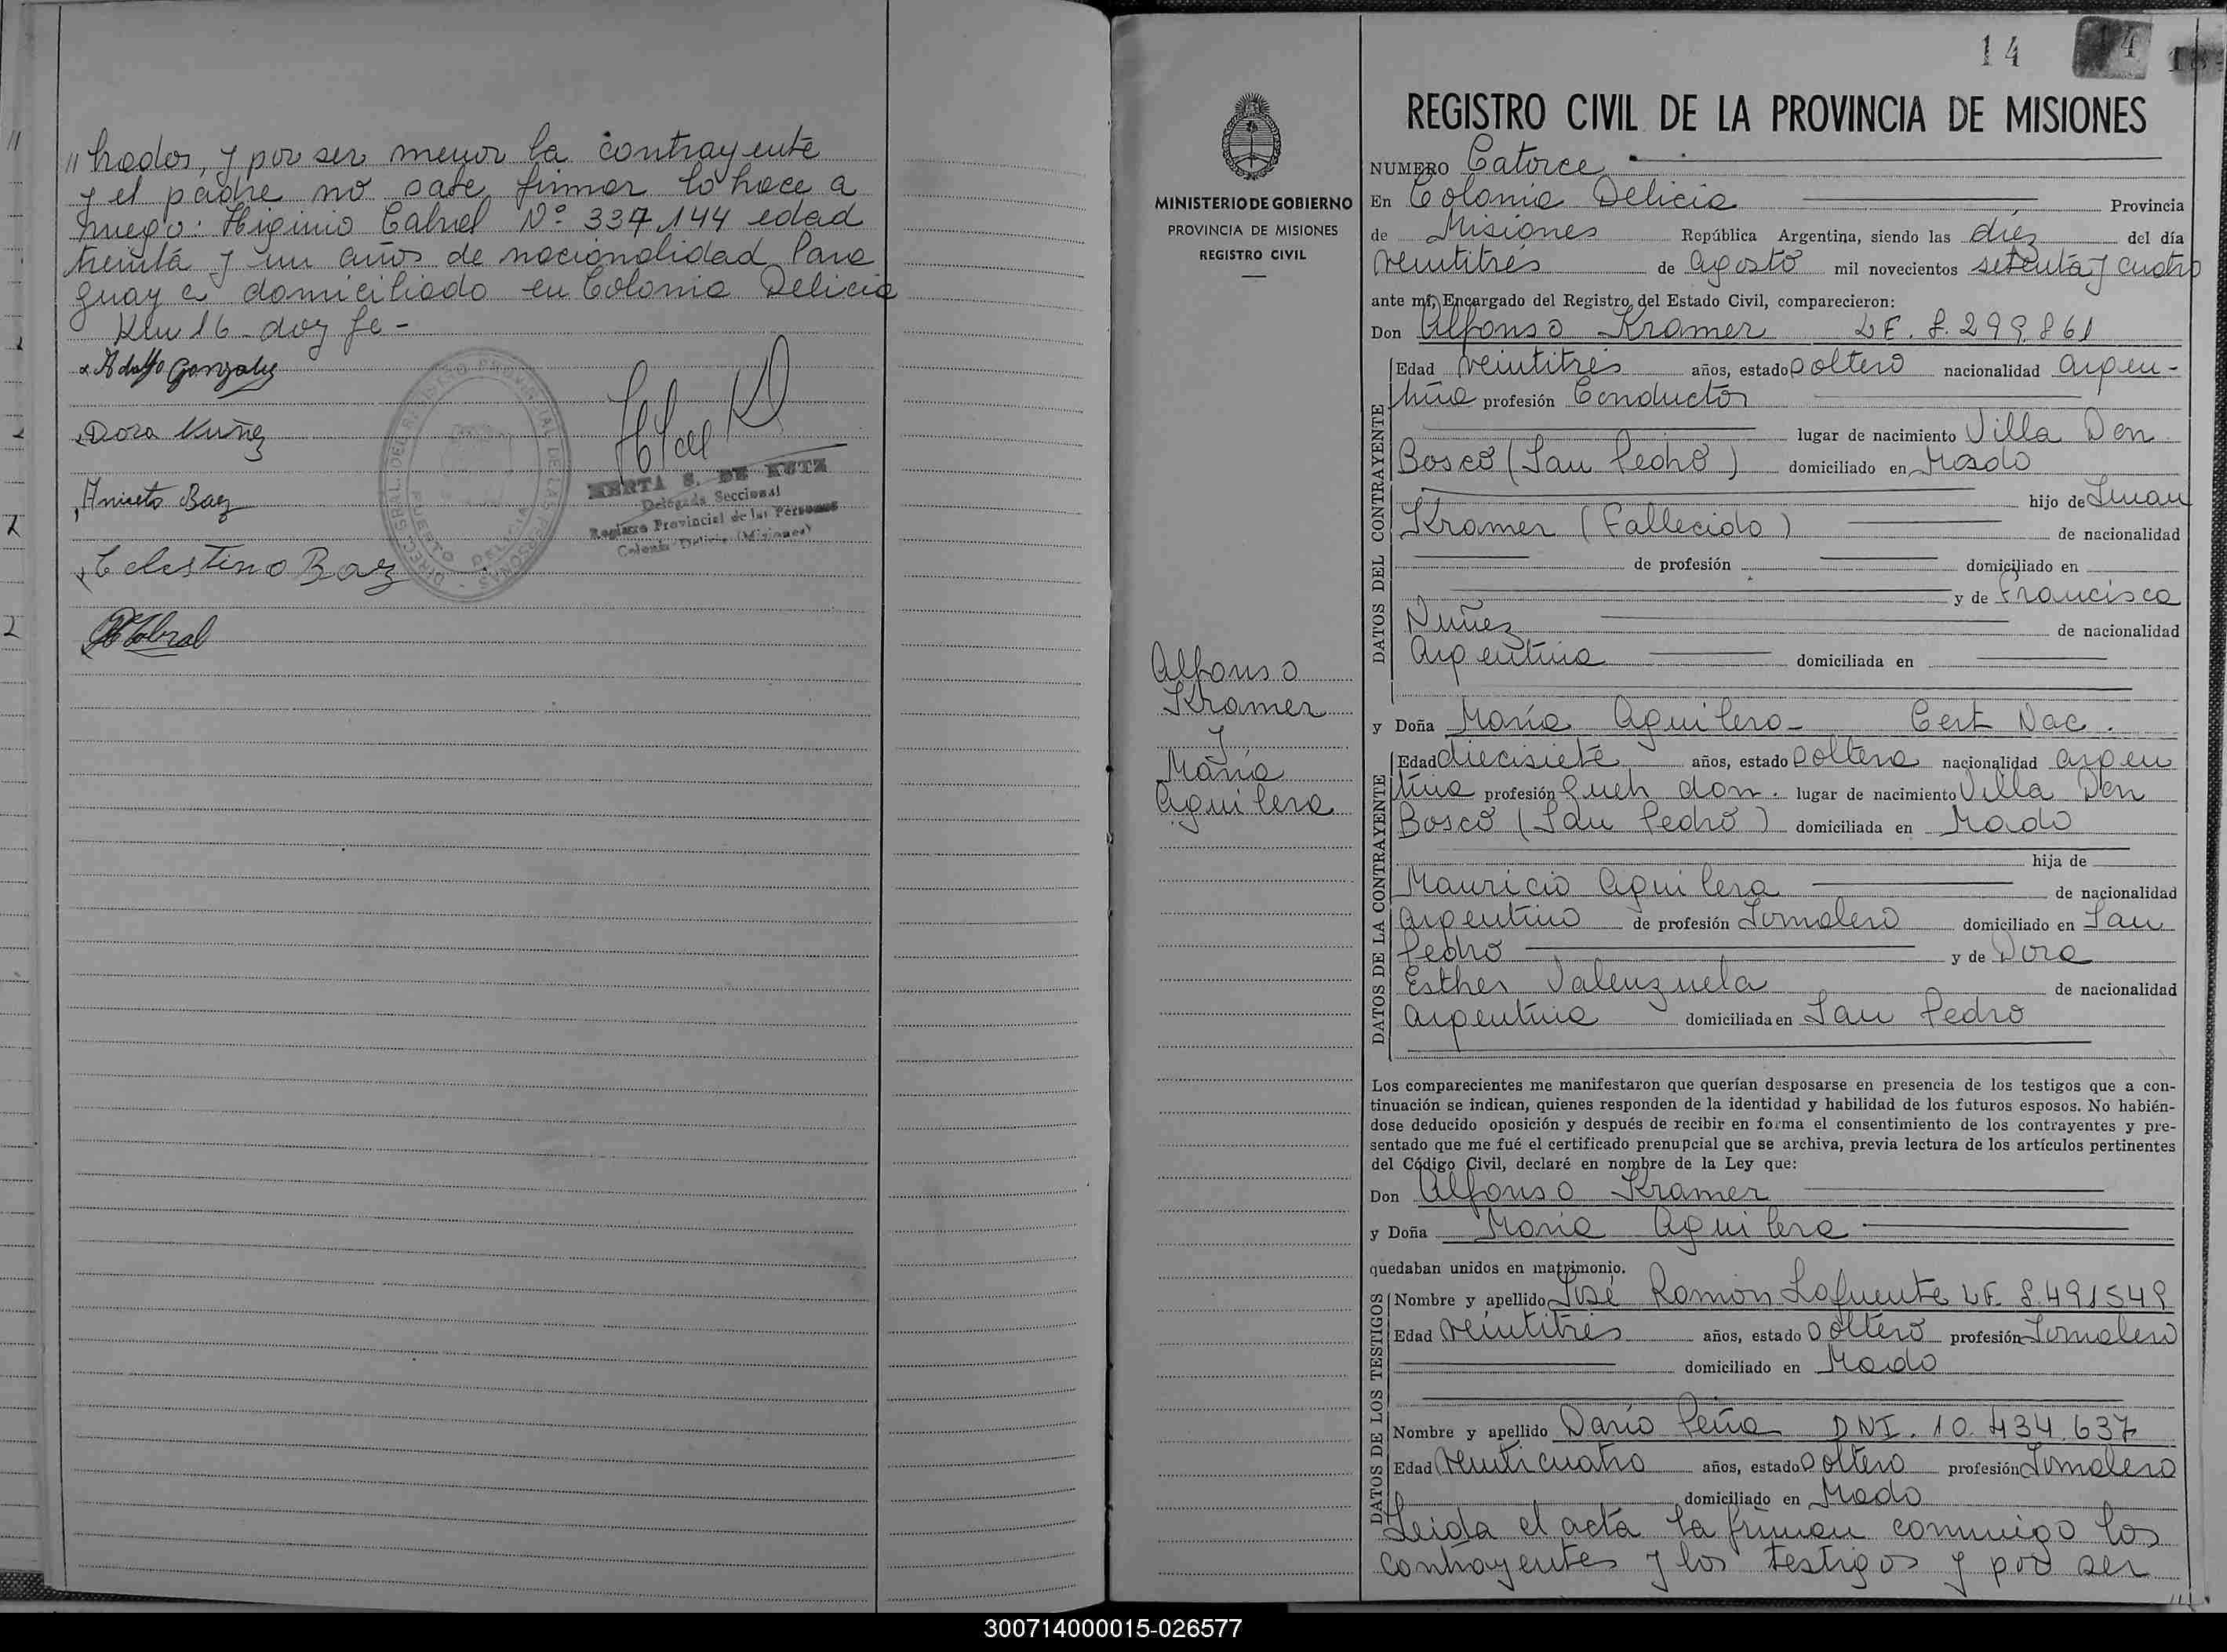 " trados, y por ser menor la contrayente
y el padre no sabe firmar lo hace a
ruego: Higinio Cabral Nº 337.144 edad
treinta y un años de nacionalidad Para
guaya domiciliado en Colonia Delicia
Km 16 - doy fe -
Adolfo Gonzalez
Dora Nuñez
Aniceto Baez
Celestino Baez
HCabral
HERTA S. DE KUTZ
Delegada Seccional
Registro Provincial de las Personas
Colonia Delicia (Misiones)
14
14
REGISTRO CIVIL DE LA PROVINCIA DE MISIONES
MINISTERIO DE GOBIERNO
PROVINCIA DE MISIONES
REGISTRO CIVIL
Alfonso
Kramer
y
María
Aguilera
NUMERO Catorce
En Colonia Delicia Provincia
de Misiones República Argentina, siendo las diéz del día
veintitrés de agosto mil novecientos setenta y cuatro
ante mí, Encargado del Registro del Estado Civil, comparecieron:
Don Alfonso Kramer L.E. 8.299.861
DATOS DEL CONTRAYENTE
Edad veintitrés años, estado soltero nacionalidad argen-
tina profesión Conductor
lugar de nacimiento Villa Don
Bosco (San Pedro) domiciliado en Mado
hijo de Juan
Kramer (Fallecido) de nacionalidad
de profesión domiciliado en
y de Francisca
Nuñez de nacionalidad
Argentina domiciliada en
y Doña María Aguilera - Cert Nac.
DATOS DE LA CONTRAYENTE
Edad diecisiete años, estado soltera nacionalidad argen
tina profesión Queh dom. lugar de nacimiento Villa Don
Bosco (San Pedro) domiciliada en Mado
hija de
Mauricio Aguilera de nacionalidad
argentino de profesión Jornalero domiciliado en San
Pedro y de Dora
Esther Valenzuela de nacionalidad
argentina domiciliada en San Pedro
Los comparecientes me manifestaron que querían desposarse en presencia de los testigos que a con-
tinuación se indican, quienes responden de la identidad y habilidad de los futuros esposos. No habién-
dose deducido oposición y después de recibir en forma el consentimiento de los contrayentes y pre-
sentado que me fué el certificado prenupcial que se archiva, previa lectura de los artículos pertinentes
del Código Civil, declaré en nombre de la Ley que:
Don Alfonso Kramer
y Doña María Aguilera
quedaban unidos en matrimonio.
DATOS DE LOS TESTIGOS
Nombre y apellido José Ramón Lafuente L.E. 8.491549
Edad veintitrés años, estado soltero profesión Jornalero
domiciliado en Mado
Nombre y apellido Darío Peña DNI. 10.434.637
Edad veinticuatro años, estado soltero profesión Jornalero
domiciliado en Mado
Leida el acta la firman conmigo los
contrayentes y los testigos y por ser
300714000015-026577